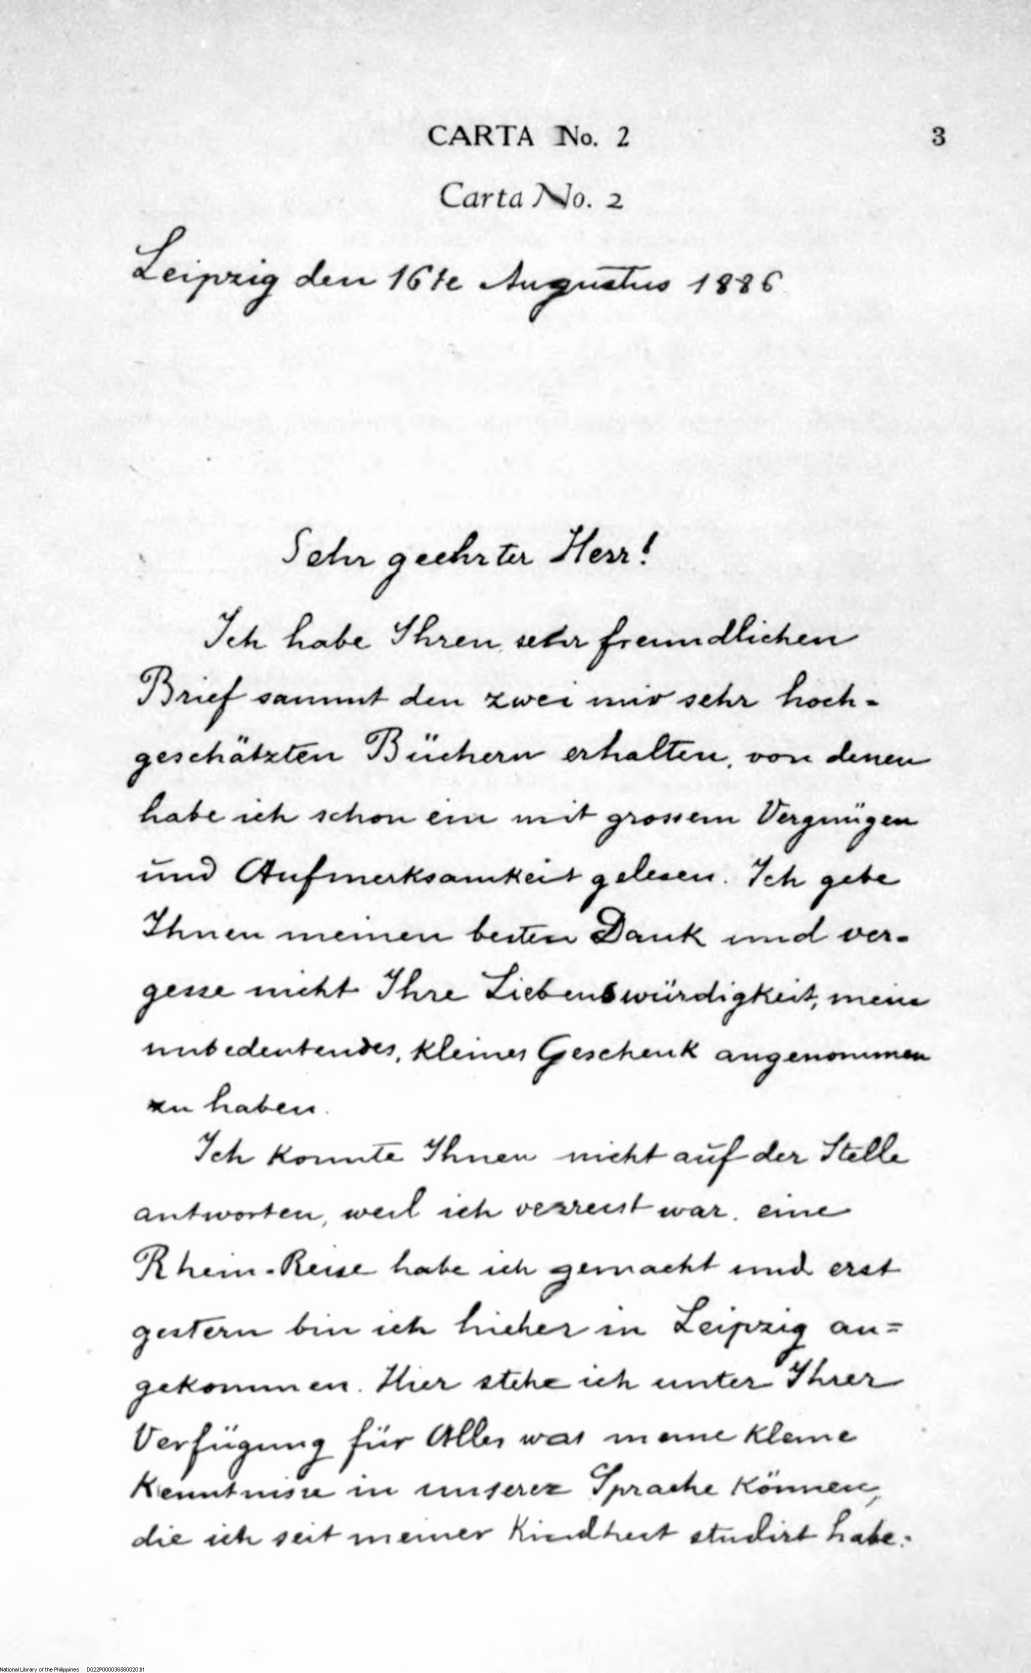 CARTA No. 2 3
Carta No. 2
Leipzig den 16te Augustus 1886
Sehr geehrter Herr!
Ich habe Ihren sehr freundlichen
Brief sammt den zwei mir sehr hoch-
geschätzten Büchern erhalten, von denen
habe ich schon ein mit grossem Vergnügen
und Aufmerksamkeit gelesen. Ich gebe
Ihnen meinen besten Dank und ver-
gesse nicht Ihre Liebenswürdigkeit, mein
unbedeutendes, kleines Geschenk angenommen
zu haben.
Ich konnte Ihnen nicht auf der Stelle
antworten, weil ich verreist war. eine
Rhein-Reise habe ich gemacht und erst
gestern bin ich hieher in Leipzig an=
gekommen. Hier stehe ich unter Ihrer
Verfügung für Alles was meine kleine
Kenntnisse in unserer Sprache können,
die ich seit meiner Kindheit studirt habe.
National Library of the Philippines